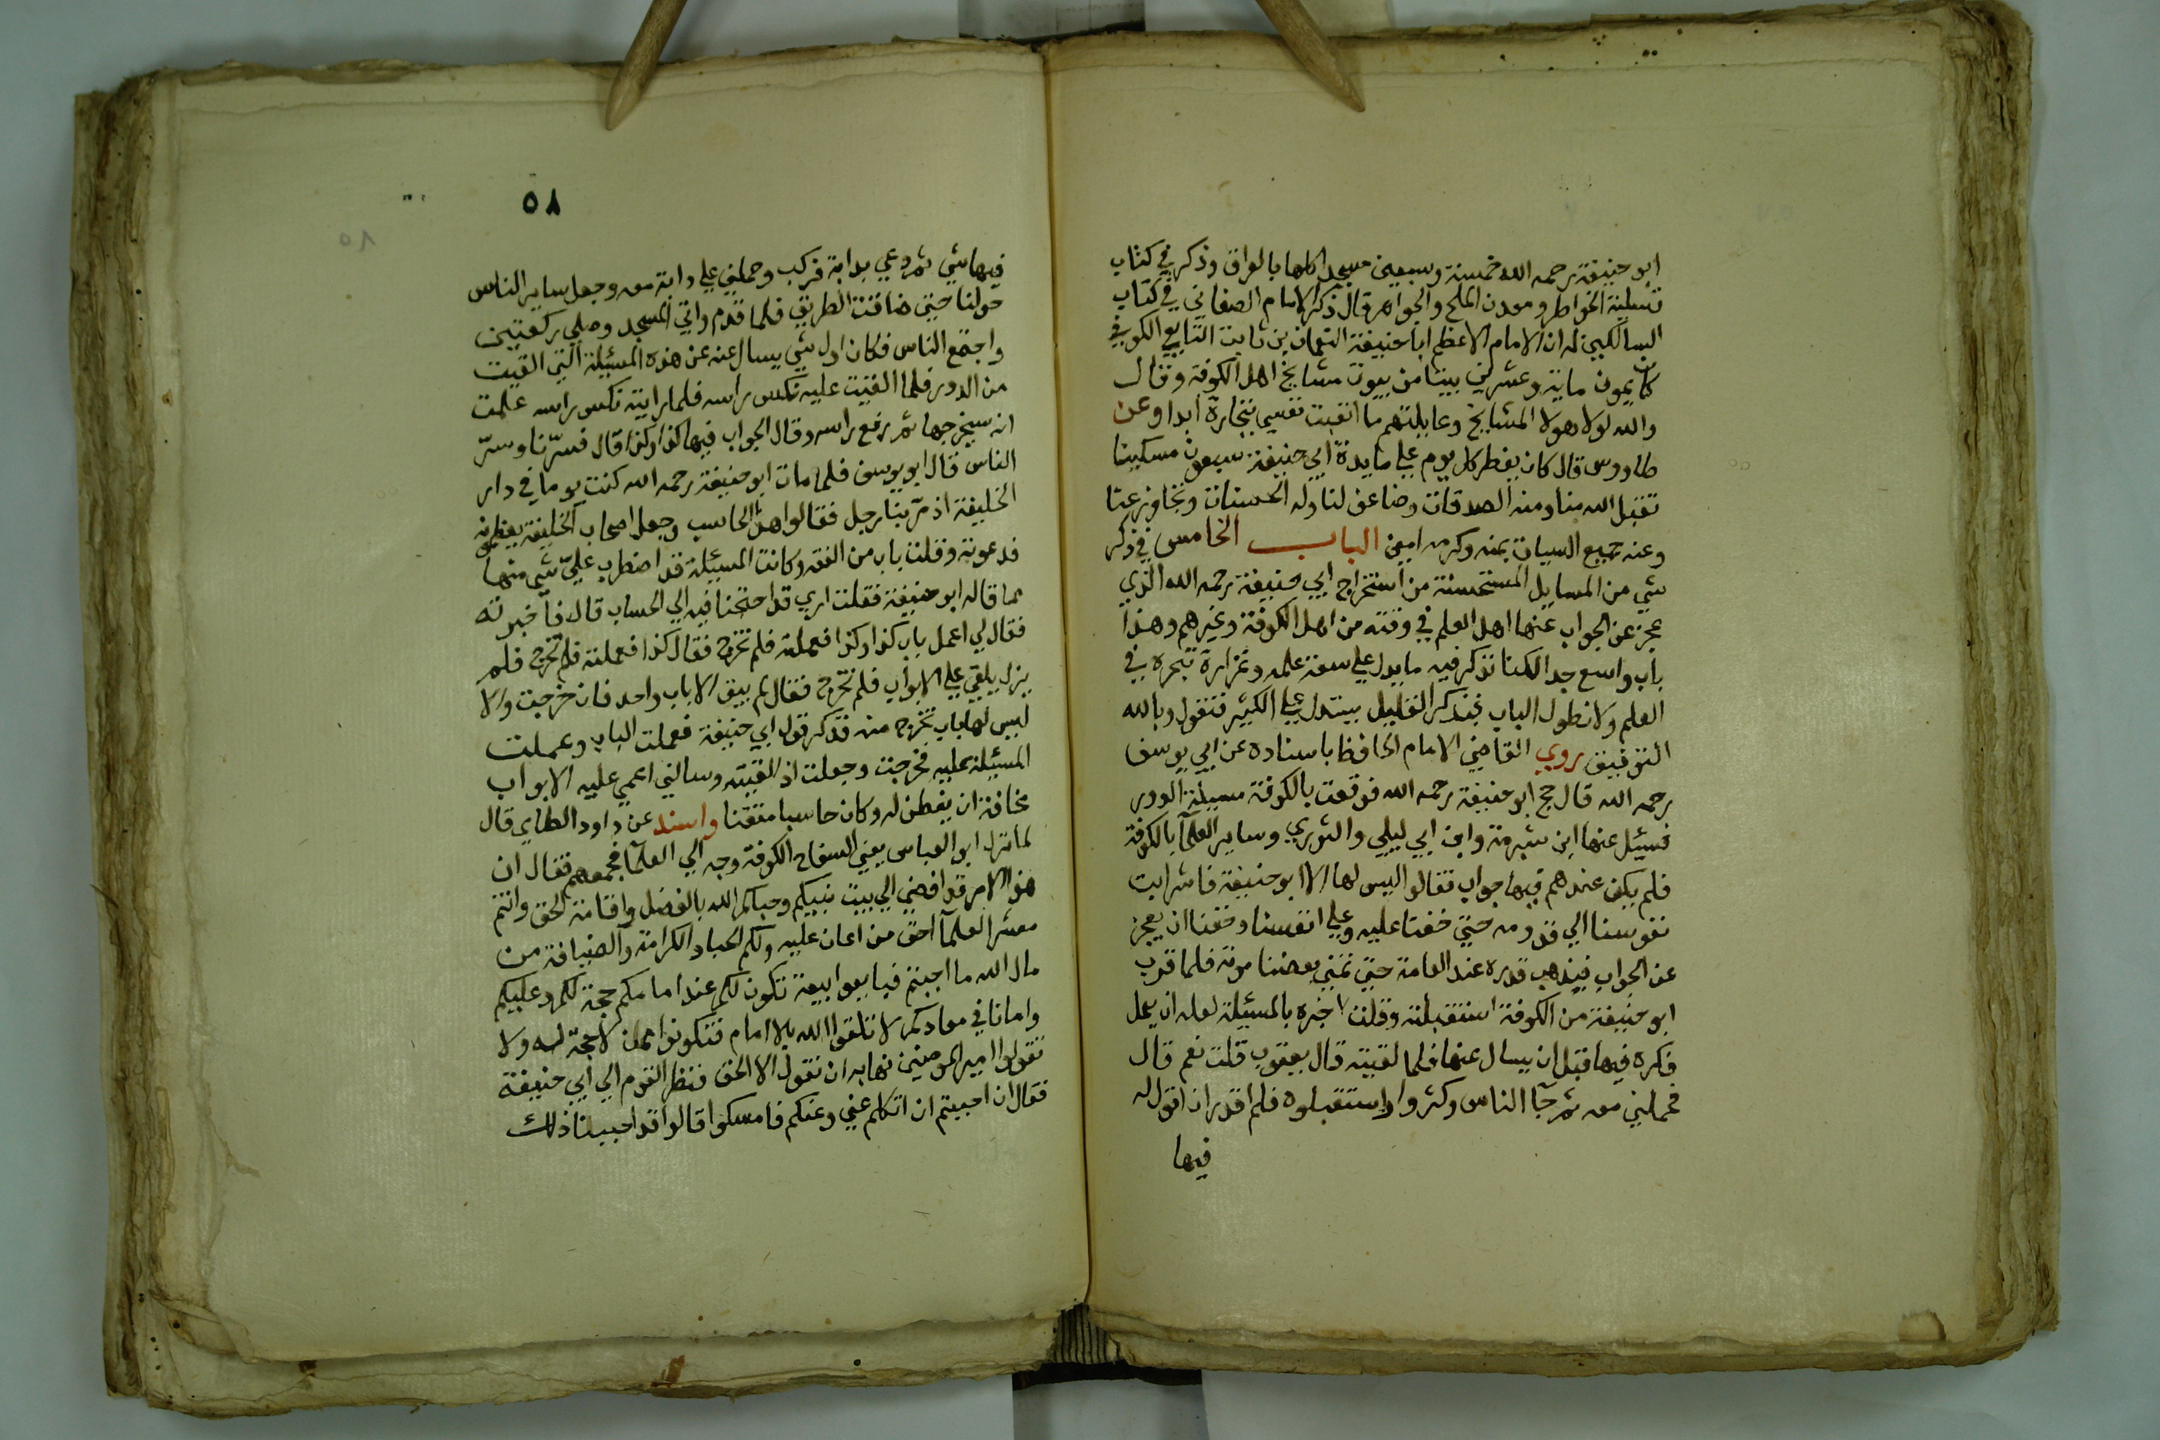 ابو حنيفة رحمه الله خمسة وسبعين مسجدا كلها بالعراق وذكر في كتاب
تسلية الخواطر ومعدن الملح والجواهر قال ذكر الامام الصغاني في كتاب
السالكين له ان الامام الاعظم ابا حنيفة النعمان بن ثابت التابعي الكوفي
كان يمون ماية وعشرين بيتا من بيوت مشايخ اهل الكوفة وقال
والله لولا هولا المشايخ وعايلتهم ما اتعبت نفسي بتجارة ابدا وعن
طاووس قال كان يفطر كل يوم على مايدة ابي حنيفة سبعون مسكينا
تقبل الله منا ومنه الصدقات وضاعف لنا وله الحسنات وتجاوز عنا
وعنه جميع السيات بمنه وكرمه امين الباب الخامس في ذكر
شي من المسايل المستحسنة من استخراج ابي حنيفة رحمه الله الذي
عجز عن الجواب عنها اهل العلم في وقته من اهل الكوفة وغيرهم وهذا
باب واسع جدا لكنا نذكر فيه ما يدل على سعة علمه وغزارة تبحره في
العلم ولا نطول الباب فبذكر القليل يستدل على الكثير فنقول وبالله
التوفيق روي القاضي الامام الحافظ باسناده عن ابي يوسف
رحمه الله قال حج ابو حنيفة رحمه الله فوقعت بالكوفة مسيلة الدور
فسيل عنها ابن شبرمة وابن ابي ليلي والثوري وساير العلمآ بالكوفة
فلم يكن عندهم فيها جواب فقالوا ليس لها الا ابو حنيفة فاشرابت
نفوسنا الي قدومه حتي خفنا عليه وعلي انفسنا وخفنا ان يعجز
عن الجواب فيذهب قدره عند العامة حتي تمني بعضنا موته فلما قرب
ابو حنيفة من الكوفة استقبلته وقلت اخبره بالمسئيلة لعله ان يعمل
فكره فيها قبل ان يسال عنها فلما لقيته قال يعقوب قلت نعم قال
فحملني معه ثم جآ الناس وكثروا واستقبلوه فلم اقدر ان اقول له
فيها
٥٨
٥٨
فيها شي ثم دعي بدابة فركب وحملني علي دابة معه وجعل ساير الناس
حولنا حتي ضاقت الطريق فلما قدم واتي المسجد وصلي ركعتين
واجتمع الناس فكان اول شي يسال عنه عن هذه المسئيلة التي القيت
من الدور فلما القيت عليه نكس راسه فلما رايته نكس راسه علمت
انه سيخرجها ثم رفع راسه وقال الجواب فيها كذا وكذا قال فسرّنا وسرّ
الناس قال ابو يوسف فلما مات ابو حنيفة رحمه الله كنت يوما في دار
الخليفة اذ مرّ بنا رجل فقالوا هذا الحاسب وجعل اصحاب الخليفة يعظمونه
فدعوته وقلت باب من الفقه وكانت المسئيلة قد اضطرب عليّ شي منها
مما قاله ابو حنيفة فقلت اري قد احتجنا فيه الي الحساب قال فاخبرته
فقال لي اعمل باب كذا وكذا فعملته فلم تخرج فقال كذا فعملته فلم تخرج فلم
يزل يلقي علي الابواب فلم تخرج فقال لم يبق الا باب واحد فان خرجت والا
ليس لها باب تخرج منه فذكر قول ابي حنيفة فعملت الباب وعملت
المسئيلة عليه فخرجت وجعلت اذا لقيته وسالني اعمي عليه الابواب
مخافة ان يفطن له وكان حاسبا متقنا واسند عن داود الطاي قال
لما نزل ابو العباس يعني السفاح الكوفة وجه الي العلمآ فجمعهم فقال ان
هذا الامر قد افضي الي بيت نبيكم وحباكم الله بالفضل واقامة الحق وانتم
معشر العلمآ احق من اعان عليه ولكم الحباء والكرامة والضيافة من
مال الله ما احببتم فبايعوا بيعة تكون لكم عند امامكم حجة لكم وعليكم
وامانا في معادكم لا تلقوا الله بلا امام فتكونوا ممن لا حجة له ولا
تقولوا امير المومنين نهابه ان نقول الا الحق فنظر القوم الي ابي حنيفة
فقال ان احببتم ان اتكلم عني وعنكم فامسكوا قالوا قد احببنا ذلك